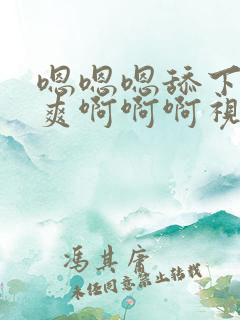 嗯嗯嗯舔下
爽啊啊啊視
馮其庸
未经同意禁止转载